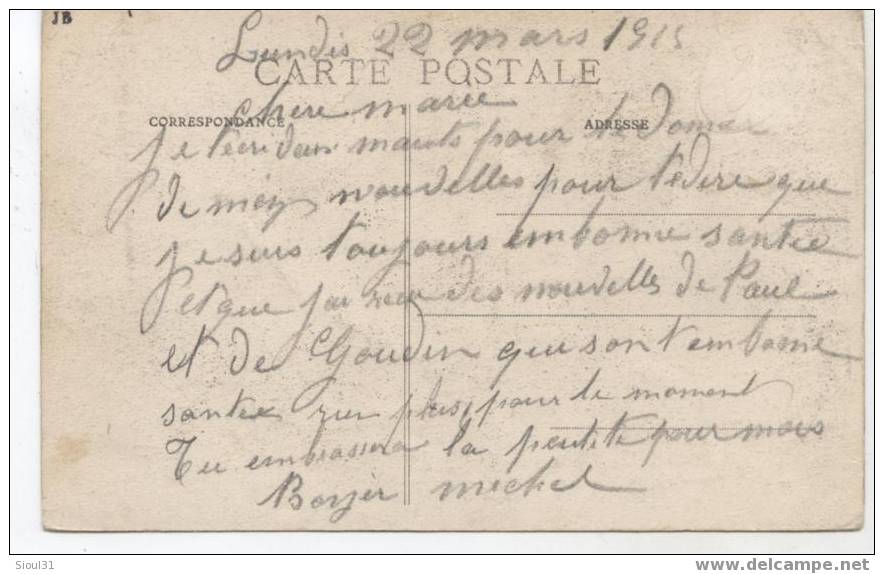 JB
Lundis 22 mars 1915
CARTE POSTALE
Chere marie
CORRESPONDANCE
ADRESSE
je técri deux mauts pour te doner
de méz nouvelles pour tédire que
je suis toujours embonne santée
et que jai reçu des nouvelles de Paul
et de Goudin qui sont embonne
santée rien plus pour le moment
Tu embrassera la peutite pour mois
michel
Sioul31
www.delcampe.net